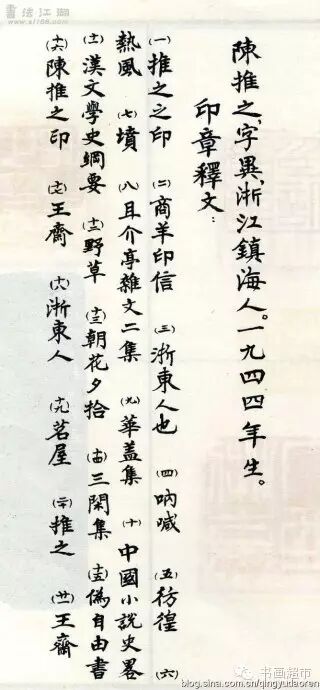 書法江湖
陳推之，字異，浙江鎮海人。一九四四年生。
印章釋文：
(一) 推之之印 (二) 商羊印信 (三) 浙東人也 (四) 吶喊 (五) 彷徨 (六)
熱風 (七) 墳 (八) 且介亭雜文二集 (九) 華蓋集 (十) 中國小說史畧
(十一) 漢文學史綱要 (十二) 野草 (十三) 朝花夕拾 (十四) 三閑集 (十五) 偽自由書
(十六) 陳推之印 (十七) 王齋 (十八) 浙東人 (十九) 茗屋 (二十) 推之 (廿一) 王齋
书画超市
blog.sina.com.cn/qingyudaoren